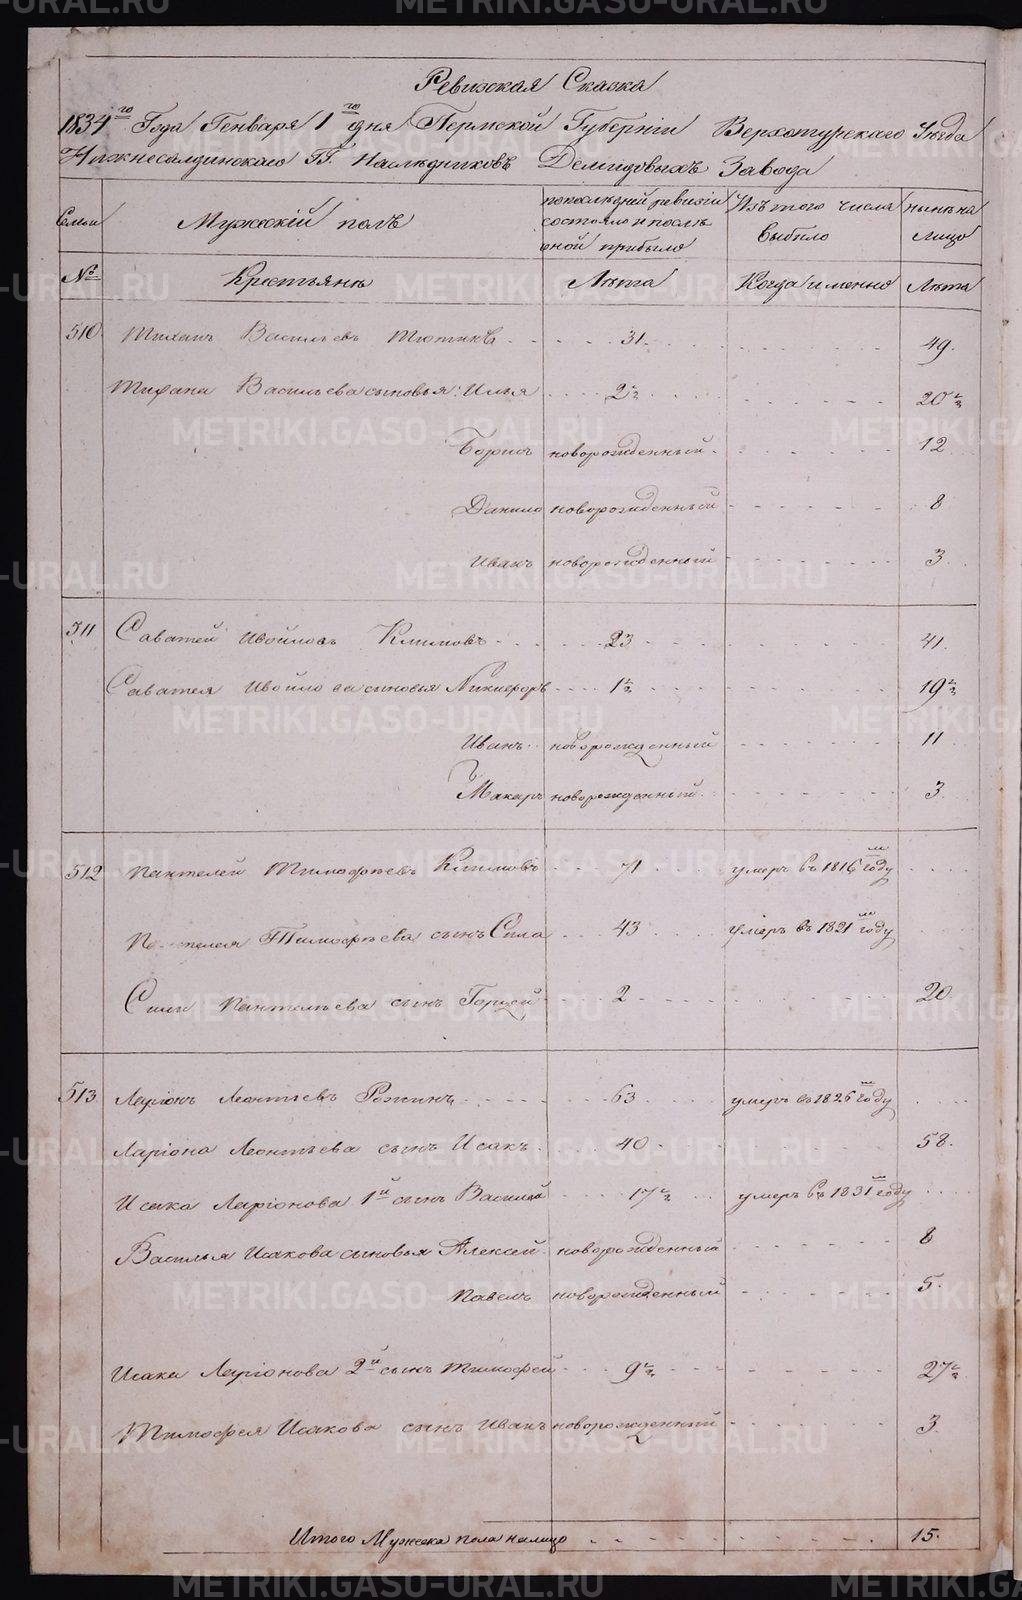 Ревизская Сказка
1834го Года Генваря 1го дня Пермской Губернiи Верхотурскаго Уѣзда
Нижнесалдинскаго ГГ. Наслѣдниковъ Демидовыхъ Завода
Семьи Мужескiй полъ по последней ревизiи состояло и послѣ оной прибыло Изъ того числа выбыло нынѣ на лицо
№ Крестьянъ Лѣта Когда именно Лѣта
510. Васильевъ 31. 49.
Васильева сыновья: Илья 2½ 20½
Борисъ новорожденный 12
Данило новорожденный 8
Иванъ новорожденный 3
511 Саватей Ивойловъ Климовъ 23 41.
Саватея Ивойлова сыновья Никифоръ 1½ 19½
Иванъ новорожденный 11
Макаръ новорожденный 3
512 Пантелей Тимофѣевъ Климовъ 71 умеръ въ 1816м году
Пантелея Тимофѣева сынъ Сила 43 умеръ въ 1821м году
Силы Пантелѣева сынъ Гордей 2 20
513 Ларiонъ Леонтьевъ 63 умеръ въ 1826м году
Ларiона Леонтьева сынъ Исакъ 40 58.
Исака Ларiонова 1й сынъ Василей 17½ умеръ въ 1831м году
Василья Исакова сыновья Алексей новорожденный 8
Павелъ новорожденный 5.
Исака Ларiонова 2й сынъ Тимофей 9½ 27½
Тимофея Исакова сынъ Иванъ новорожденный 3
Итого Мужеска пола на лицо 15.
METRIKI.GASO-URAL.RU